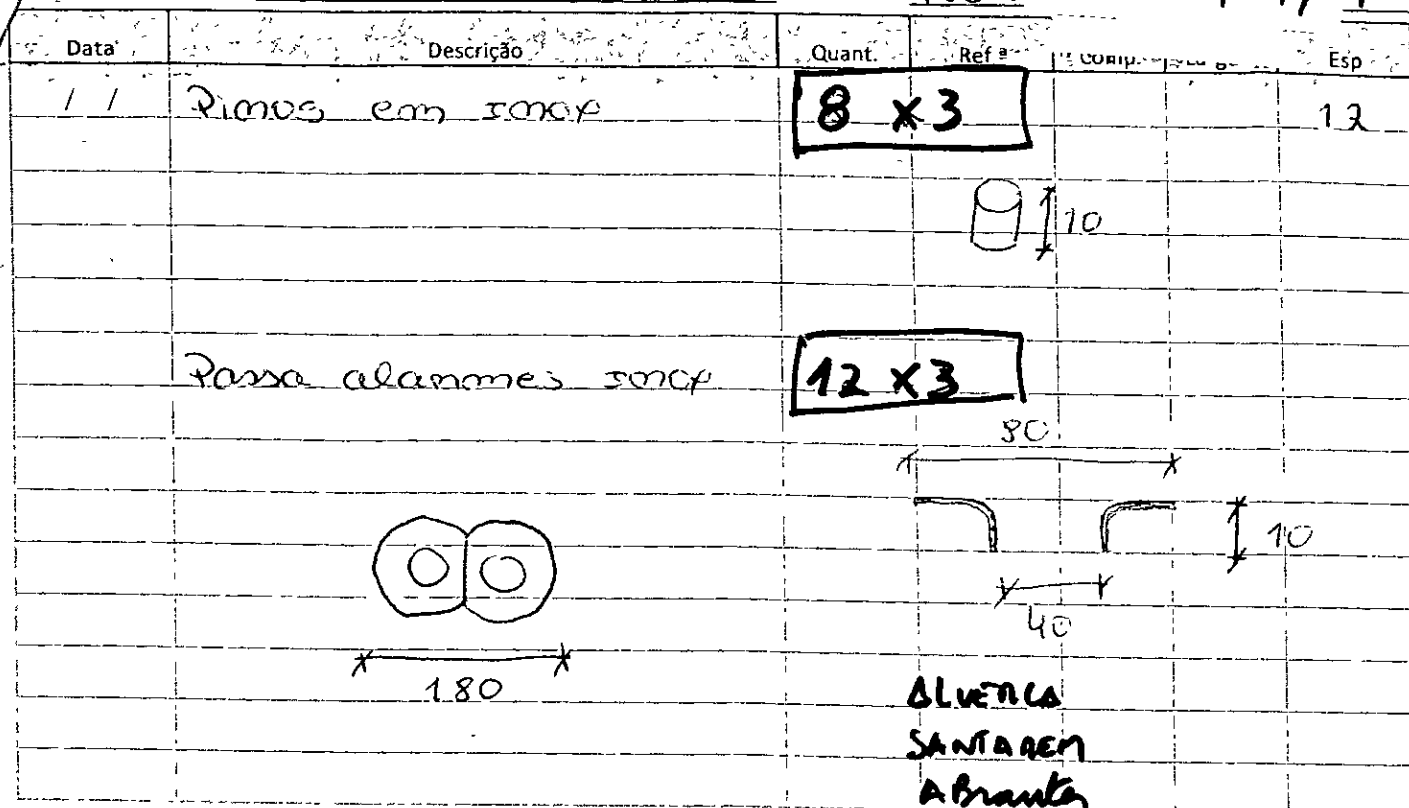 Data Descrição Quant. Ref ª Esp
/ / Pinos em Inox 8 x 3 12
10
Passa alarmes Inox 12 x 3
90
10
40
180
ALVERCA
SANTAREM
ABrantes